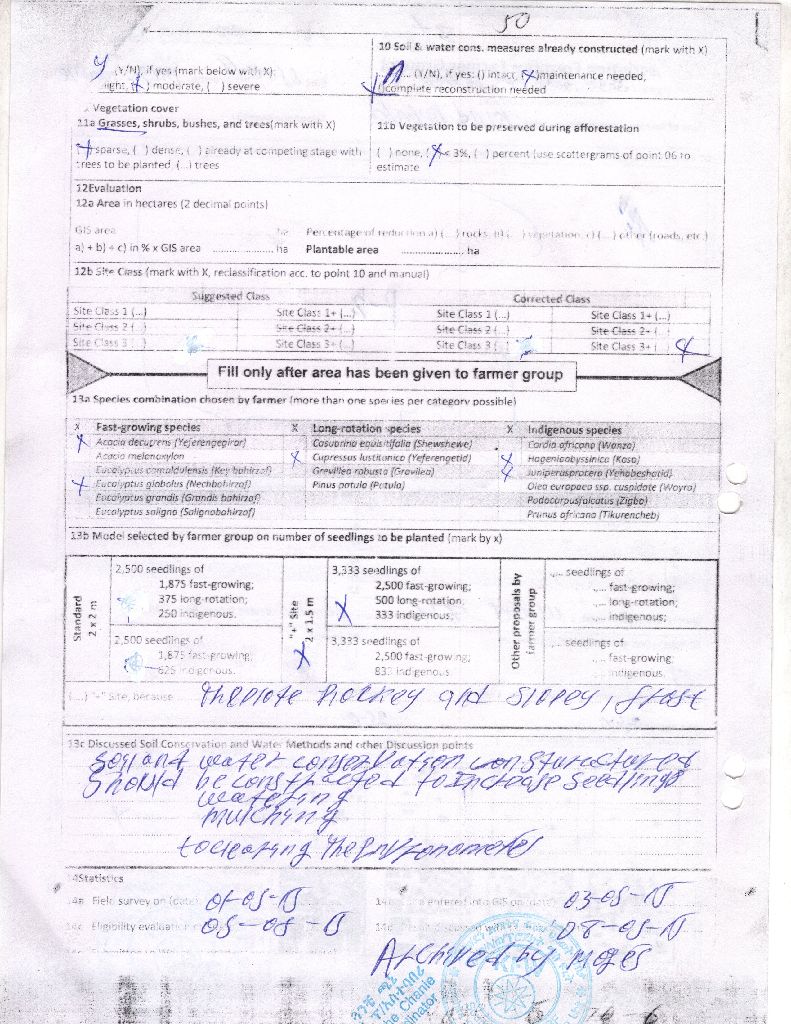 50
10 Soil & water cons. measures already constructed (mark with X)
y (Y/N), if yes (mark below with X):
n ... (Y/N), if yes: () intact, (x)maintenance needed,
ight, (x) moderate, ( ) severe
()complete reconstruction needed
Vegetation cover
11a Grasses, shrubs, bushes, and trees(mark with X)
11b Vegetation to be preserved during afforestation
(x) sparse, ( ) dense, ( ) already at competing stage with
trees to be planted (...) trees
( ) none, (x) < 3%, ( ) percent (use scattergrams of point 06 to
estimate
12Evaluation
12a Area in hectares (2 decimal points)
GIS area ha Percentage of reduction a) (...) rocks, b) (...) vegetation, c) (...) other (roads, etc.)
a) + b) + c) in % x GIS area .................. ha Plantable area .................. ha
12b Site Class (mark with X, reclassification acc. to point 10 and manual)
Suggested Class Corrected Class
Site Class 1 (...) Site Class 1+ (...) Site Class 1 (...) Site Class 1+ (...)
Site Class 2 (...) Site Class 2+ (...) Site Class 2 ( Site Class 2+ (
Site Class 3 (...) Site Class 3+ (...) Site Class 3 ( Site Class 3+ ( x
Fill only after area has been given to farmer group
13a Species combination chosen by farmer (more than one species per category possible)
X Fast-growing species X Long-rotation species X Indigenous species
x Acacia decurens (Yeferengegirar) Casuarina equisitifolia (Shewshewe) Cordia africana (Wanza)
Acacia melanoxylon x Cupressus lusitanica (Yeferengetid) x Hageniaabyssinica (Koso)
Eucalyptus camaldulensis (Key bahirzaf) Grevillea robusta (Gravilea) x Juniperusprocera (Yehabeshatid)
x Eucalyptus globolus (Nechbahirzaf) Pinus patula (Patula) Olea europaea ssp. cuspidate (Woyra)
Eucalyptus grandis (Grande bahirzaf) Podocarpusfalcatus (Zigba)
Eucalyptus saligna (Salignabahirzaf) Prunus africana (Tikurencheb)
13b Model selected by farmer group on number of seedlings to be planted (mark by x)
Standard
2 x 2 m
2,500 seedlings of
1,875 fast-growing;
375 long-rotation;
250 indigenous.
2,500 seedlings of
1,875 fast-growing;
625 indigenous.
"+" Site
2 x 1.5 m
x
3,333 seedlings of
2,500 fast-growing;
500 long-rotation,
x 333 indigenous;
3,333 seedlings of
2,500 fast-growing;
833 indigenous
Other proposals by
farmer group
.... seedlings of
.... fast-growing;
.... long-rotation;
.... indigenous;
.... seedlings of
.... fast-growing;
indigenous.
(...) "+" Site, because
rockey and slopey, frost
13c Discussed Soil Conservation and Water Methods and other Discussion points
Soil and water conservation
should be constracted to increase seedlings
watering
mulching
4Statistics
14a Field survey on (date) 01-05-15
entered into GIS on (date) 03-05-15
14c Eligibility evaluation 05-08-15
08-05-15
Archived by Moges